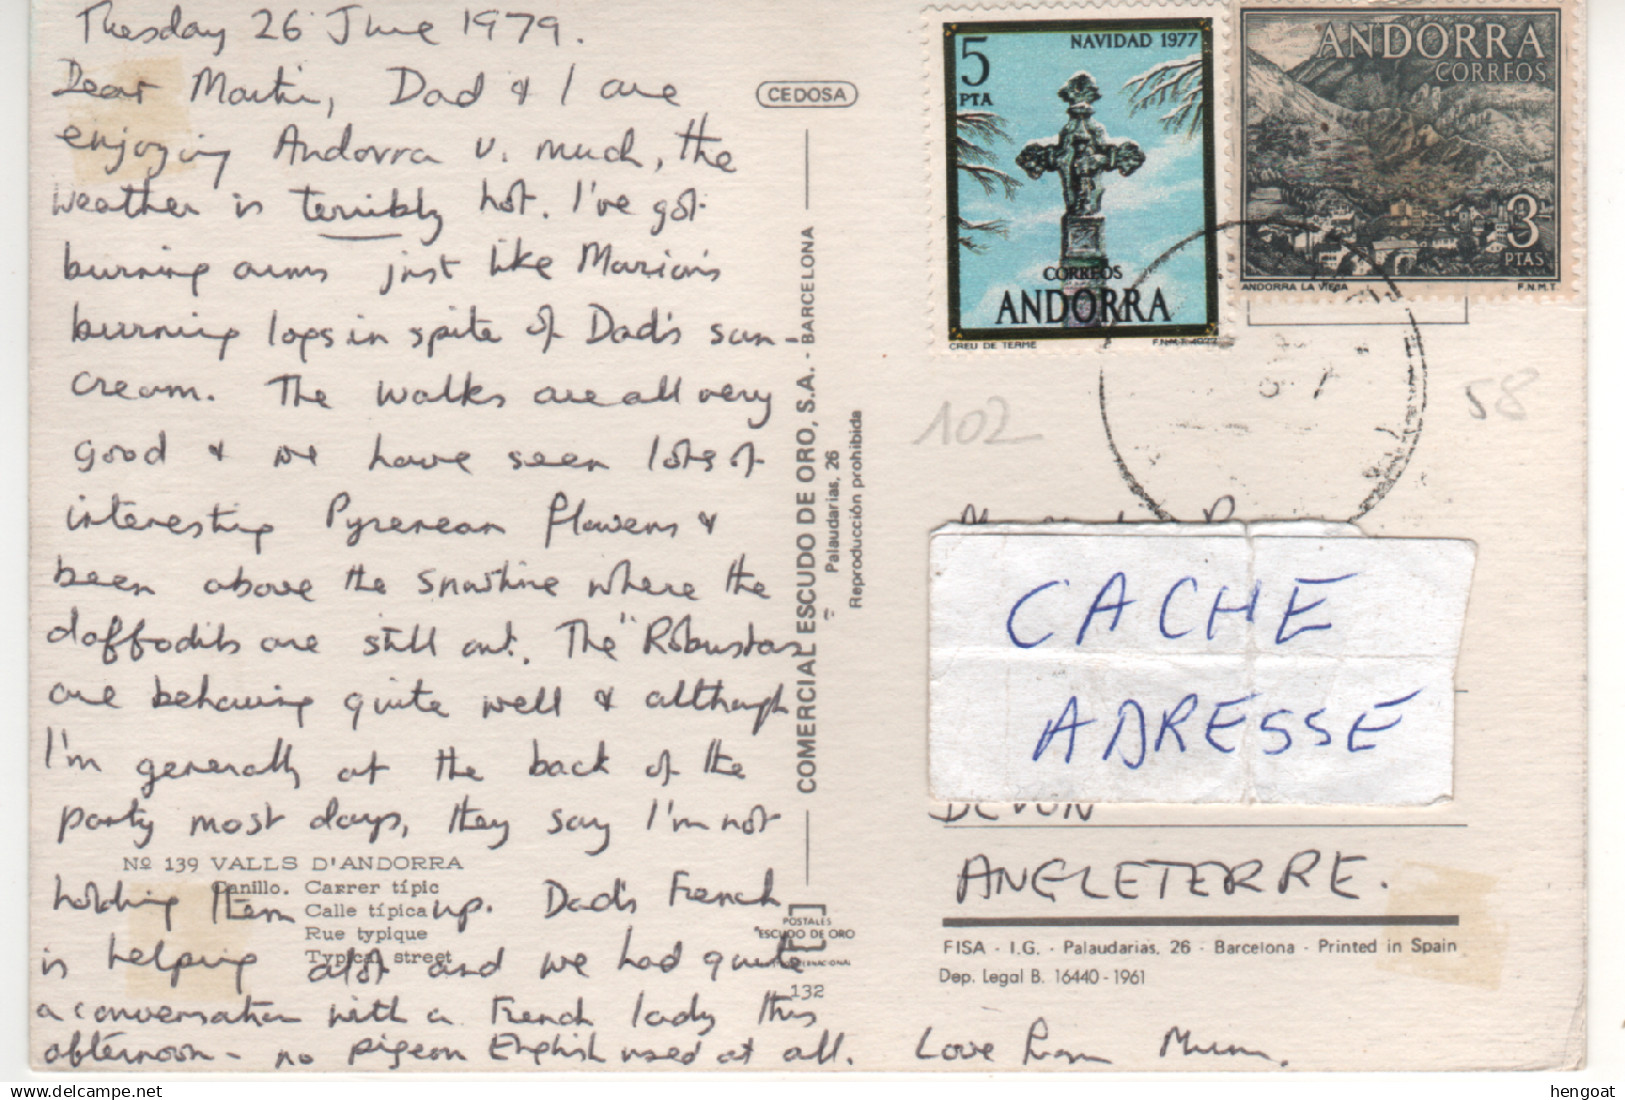 Tuesday 26 June 1979.
Dear Martin, Dad & I are
enjoying Andorra v. much, the
weather is terribly hot. I've got
burning arms just like Marion's
burning legs in spite of Dad's sun-
cream. The walks are all very
good & we have seen lots of
interesting Pyrenean flowers &
been above the snowline where the
daffodils are still out. The "Robustas"
are behaving quite well & although
I'm generally at the back of the
party most days, they say I'm not
holding them up. Dad's French
is helping alot and we had quite
a conversation with a French lady this
afternoon - no pigeon English used at all.
Love from Mum.
Nº 139 VALLS D'ANDORRA
Canillo. Carrer típic
Calle típica
Rue typique
Typical street
CEDOSA
COMERCIAL ESCUDO DE ORO, S.A. - BARCELONA
Palaudarias, 26
Reproducción prohibida
POSTALES
ESCUDO DE ORO
132
5
PTA
NAVIDAD 1977
CORREOS
ANDORRA
CREU DE TERME
F.N.M.T. 1977
ANDORRA
CORREOS
3
PTAS
ANDORRA LA VIEJA
F.N.M.T.
102
58
CACHE
ADRESSE
DEVON
ANGLETERRE.
FISA - I.G. - Palaudarias, 26 - Barcelona - Printed in Spain
Dep. Legal B. 16440 - 1961
hengoat